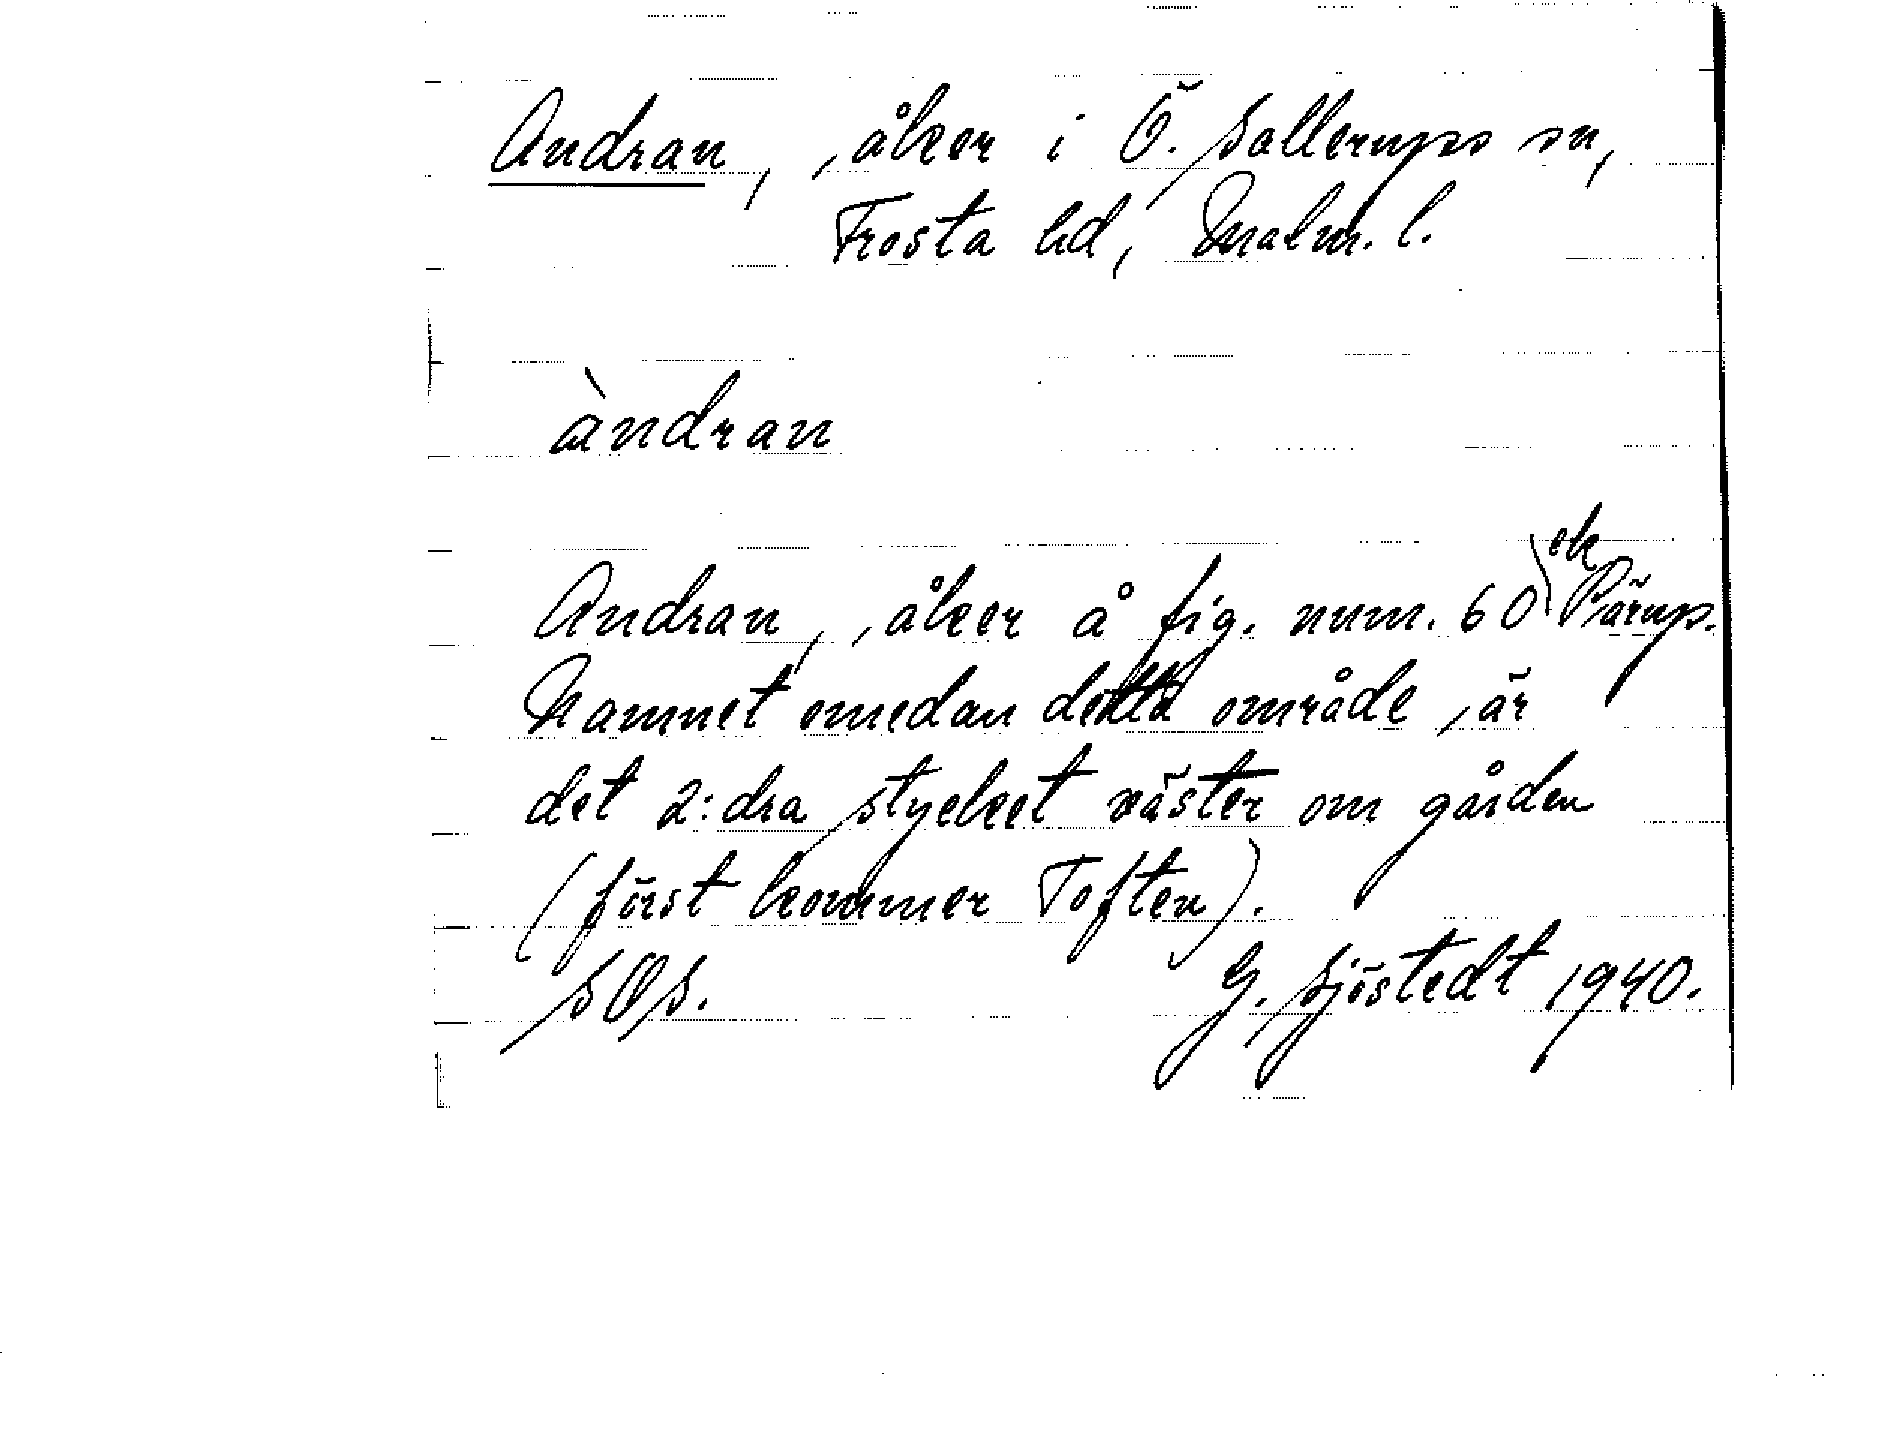 Andran, åker i Ö. Sallerups sn,
Frosta hd, Malm. l.
àndran
Andran, åker å fig. num. 60 ek Pärup.
Namnet emedan detta område är
det 2:dra stycket väster om gården
(först kommer Toften).
SOS. G. Sjöstedt 1940.